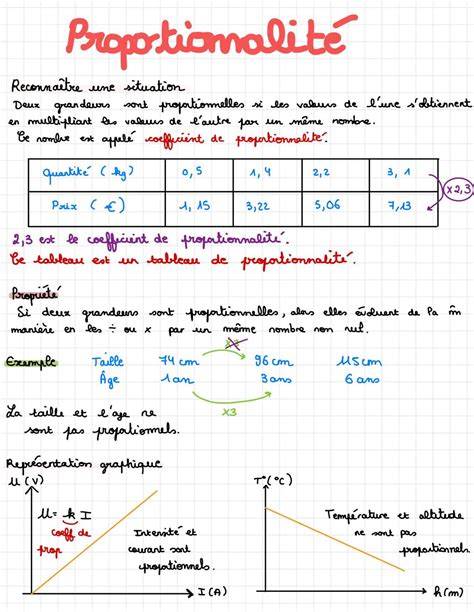 Proportionnalité
Reconnaître une situation
Deux grandeurs sont proportionnelles si les valeurs de l'une s'obtiennent
en multipliant les valeurs de l'autre par un même nombre.
Ce nombre est appelé coefficient de proportionnalité.
Quantité (kg) 0,5 1,4 2,2 3,1
x2,3
Prix (€) 1,15 3,22 5,06 7,13
2,3 est le coefficient de proportionnalité.
Ce tableau est un tableau de proportionnalité.
Propriété
Si deux grandeurs sont proportionnelles, alors elles évoluent de la m̂
manière en les ÷ ou x par un même nombre non nul.
Exemple Taille 74 cm 96 cm 115 cm
Âge 1 an 3 ans 6 ans
x3
La taille et l'age ne
sont pas proportionnels.
Représentation graphique
U (V)
U = k I
coeff de
prop
Intensité et
courant sont
proportionnels.
I (A)
T° (°C)
Température et altitude
ne sont pas
proportionnels
h (m)